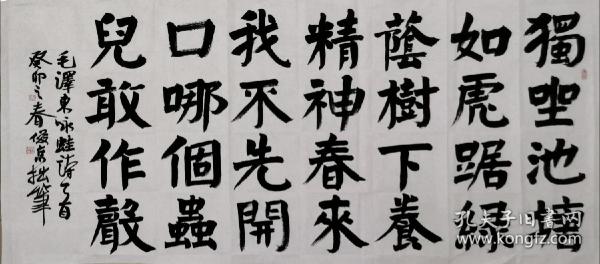 獨坐池塘
如虎踞綠
蔭樹下養
精神春來
我不先開
口哪個蟲
兒敢作聲
毛澤東咏蛙詩一首
癸卯之春 俊京拙筆
孔夫子旧书网
www.kongfz.com